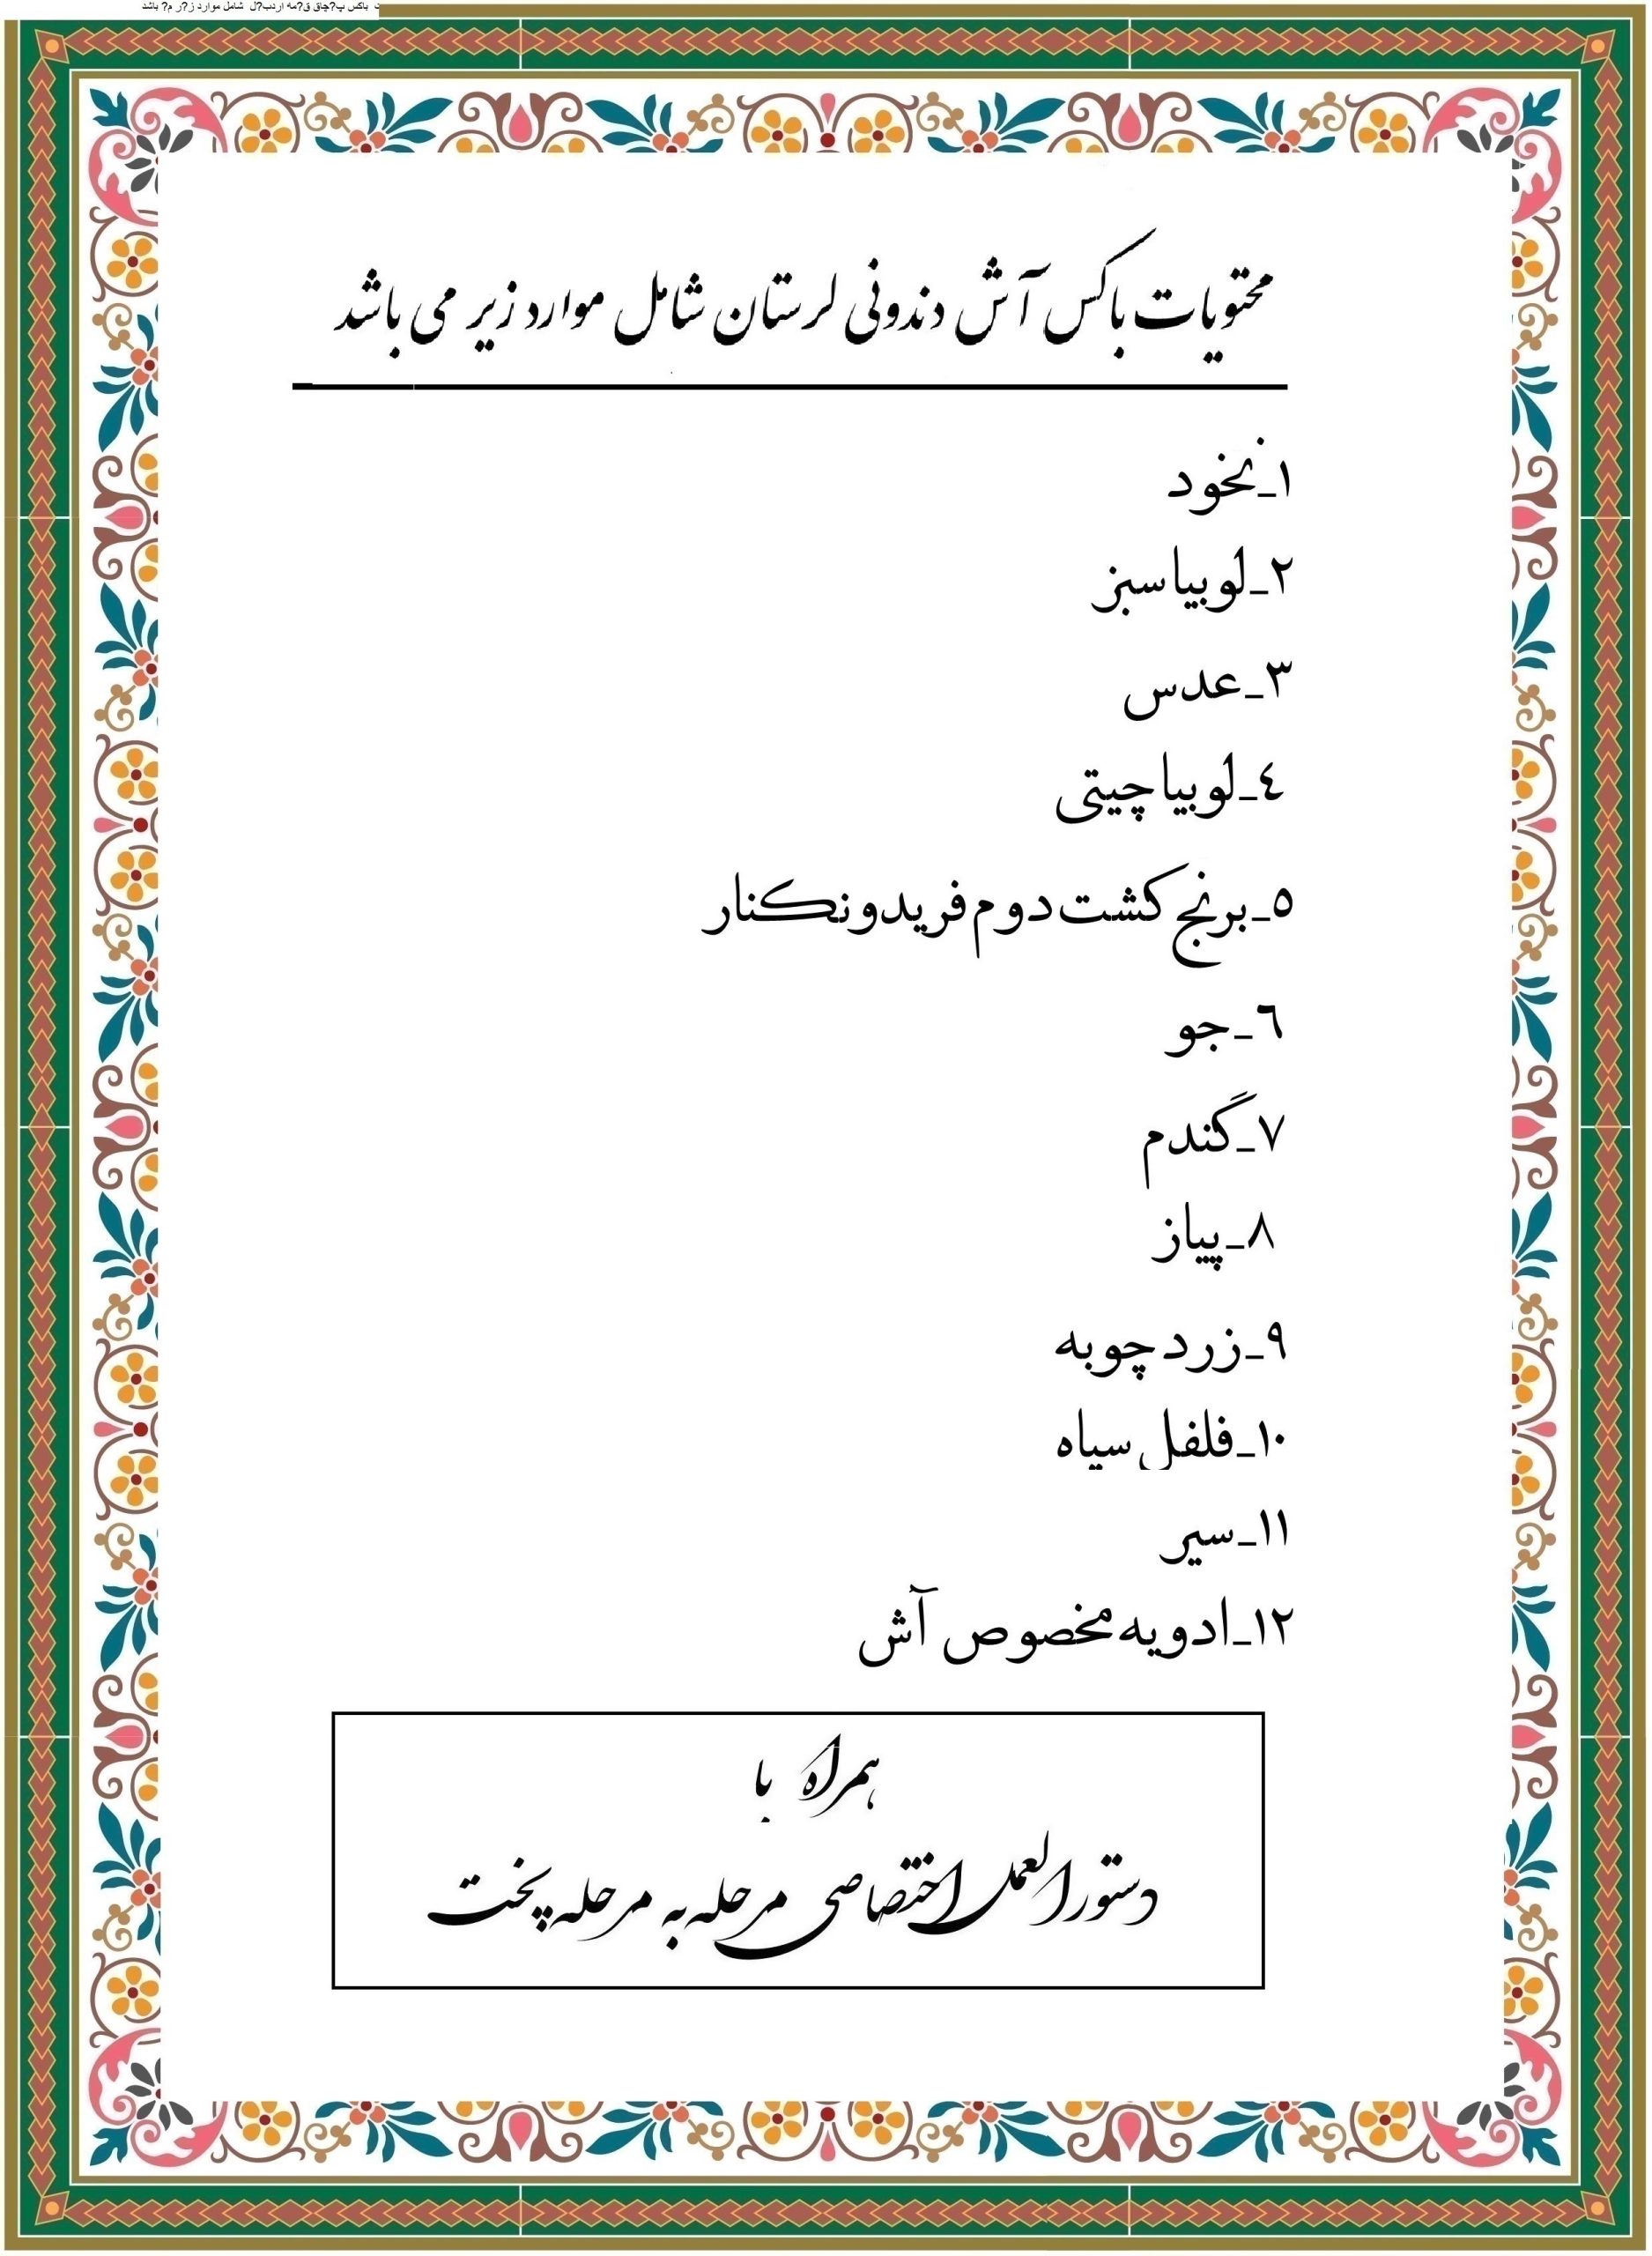 باکس پ?چاق ق?مه اردب?ل شامل موارد ز?ر م? باشد
محتویات باکس آش دندونی لرستان شامل موارد زیر می باشد
١_نخود
٢_لوبیا سبز
٣_عدس
٤_لوبیا چیتی
٥_برنج کشت دوم فریدونکنار
٦_جو
٧_گندم
٨_پیاز
٩_زردچوبه
١٠_فلفل سیاه
١١_سیر
١٢_ادویه مخصوص آش
همراه با
دستورالعمل اختصاصی مرحله به مرحله پخت